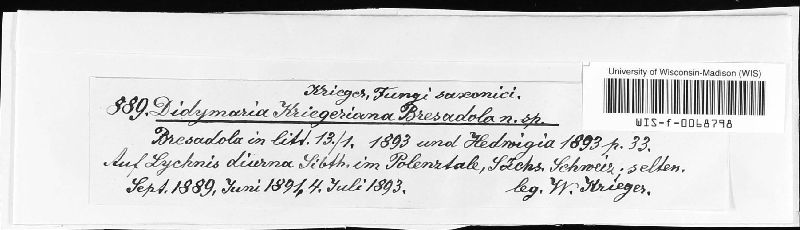 Krieger, Fungi saxonici.
889. Didymaria Kriegeriana Bresadola n. sp.
Bresadola in litt. 13./1. 1893 und Hedwigia 1893 p. 33.
Auf Lychnis diurna Sibth. im Polenztale, Sächs. Schweiz; selten.
Sept. 1889, Juni 1891, 4. Juli 1893. leg. W. Krieger.
University of Wisconsin-Madison (WIS)
WIS-f-0068798